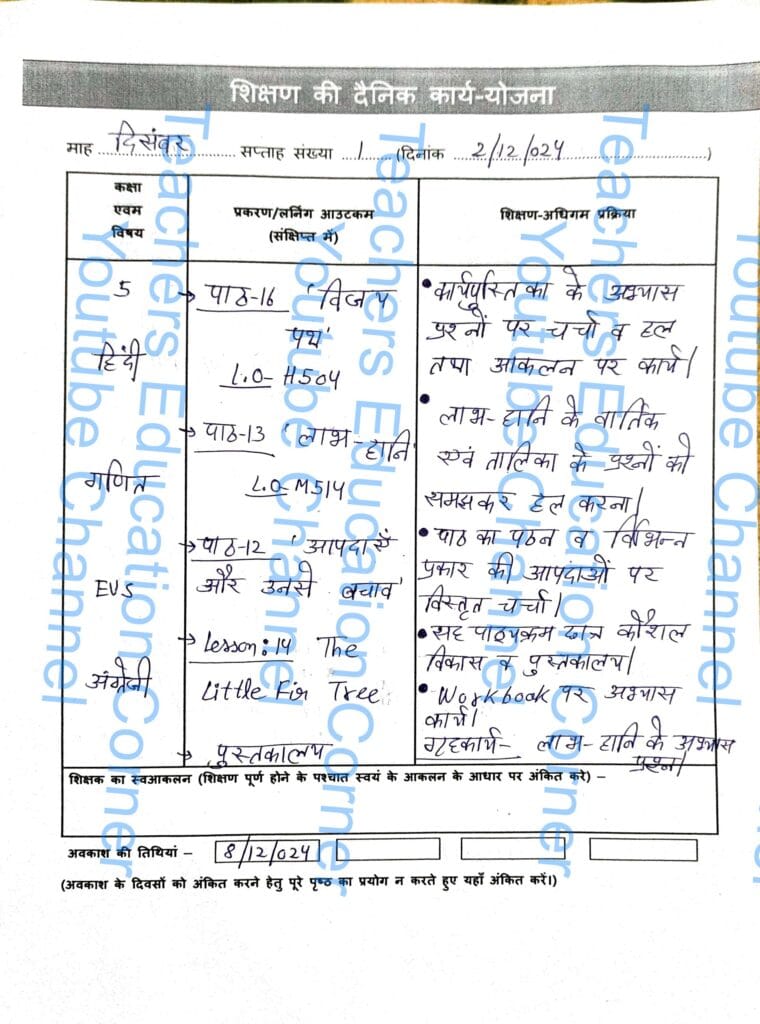 शिक्षण की दैनिक कार्य-योजना
माह दिसंबर सप्ताह संख्या 1 (दिनांक 2/12/024)
कक्षा
एवम
विषय
प्रकरण/लर्निंग आउटकम
(संक्षिप्त में)
शिक्षण-अधिगम प्रक्रिया
5
हिंदी
गणित
EVS
अंग्रेजी
→ पाठ-16 'विजय
पथ'
L.O- H504
→ पाठ-13 'लाभ-हानि'
L.O- M514
→ पाठ-12 'आपदाएँ
और उनसे बचाव'
→ Lesson: 14 The
Little Fir Tree
→ पुस्तकालय
• कार्यपुस्तिका के अभ्यास
प्रश्नों पर चर्चा व हल
तथा आकलन पर कार्य।
• लाभ-हानि के वार्तिक
एवं तालिका के प्रश्नों को
समझकर हल करना।
• पाठ का पठन व विभिन्न
प्रकार की आपदाओं पर
विस्तृत चर्चा।
• सह पाठ्यक्रम छात्र कौशल
विकास व पुस्तकालय।
• Workbook पर अभ्यास
कार्य।
गृहकार्य- लाभ-हानि के अभ्यास
प्रश्न।
शिक्षक का स्वआकलन (शिक्षण पूर्ण होने के पश्चात स्वयं के आकलन के आधार पर अंकित करे) –
अवकाश की तिथियां – 8/12/024
(अवकाश के दिवसों को अंकित करने हेतु पूरे पृष्ठ का प्रयोग न करते हुए यहाँ अंकित करें।)
Teachers Education Corner
Youtube Channel
Teachers Education Corner
Youtube Channel
Teachers Education Corner
Youtube Channel
Youtube Channel